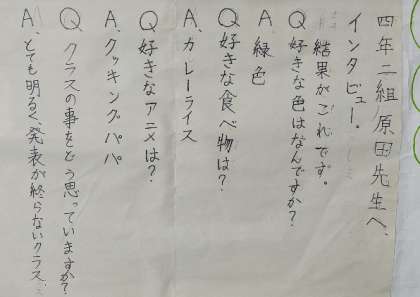 四年二組原田先生へ、
インタビュー。
結果がこれです。
Q 好きな色はなんですか？
A 緑色
Q 好きな食べ物は？
A、カレーライス
Q 好きなアニメは？
A、クッキングパパ
Q、クラスの事をどう思っていますか？
A、とても明るく、発表が終らないクラス。